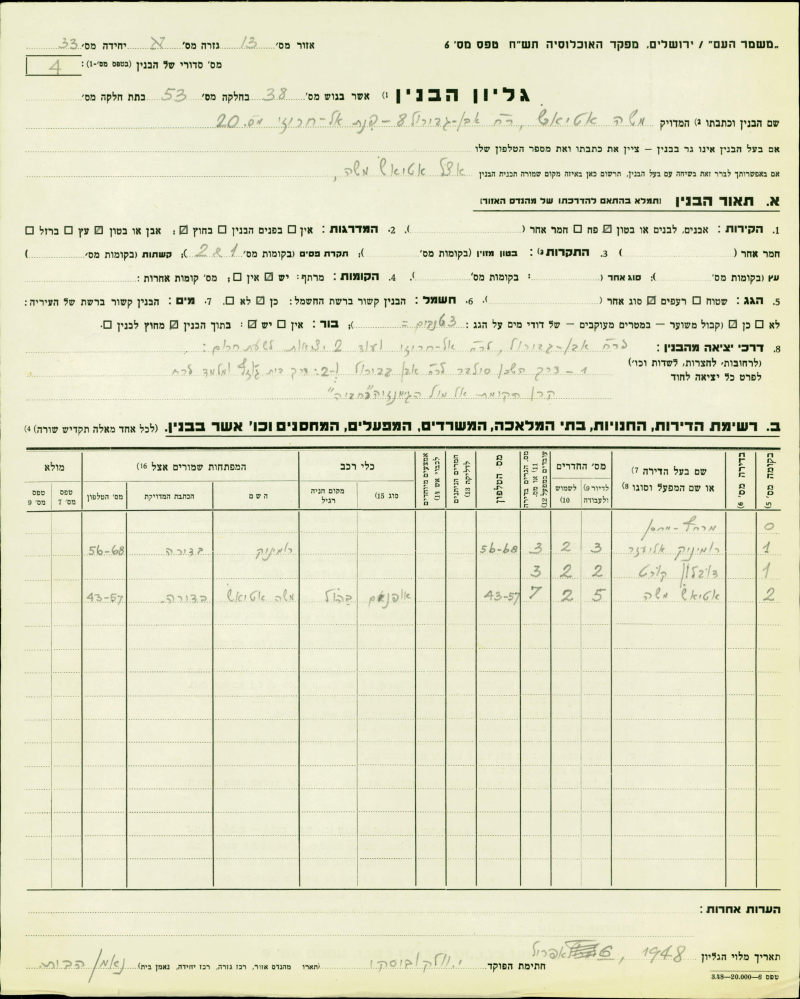 „משמר העם" / ירושלים, מפקד האוכלוסיה תש"ח טפס מס׳ 6
אזור מס׳ 13 גזרה מס׳ א יחידה מס׳ 33
מס׳ סדורי של הבנין (בטפס מס׳-1): 4
גליון הבנין 1) אשר בגוש מס׳ 38 בחלקה מס׳ 53 בתת חלקה מס׳
שם הבנין וכתבתו 2) המדויק משה אטיאש, רח׳ אבן-גבירול 8 - פנת אל-חריזי מס. 20
אם בעל הבנין אינו גר בבנין – ציין את כתבתו ואת מספר הטלפון שלו
אם באפשרותך לברר זאת בשיחה עם בעל הבנין, תרשום כאן באיזה מקום שמורה תכנית הבנין אצל אטיאש משה,
א. תאור הבנין (תמלא בהתאם להדרכתו של מהנדס האזור)
1. הקירות: אבנים, לבנים או בטון ☑ פח ☐ חמר אחר ( ). 2. המדרגות: אין ☐ בפנים הבנין ☐ בחוץ ☑: אבן או בטון ☑ עץ ☐ ברזל ☐
חמר אחר ( ) 3. התקרות 3): בטון מזוין (בקומות מס׳ ); תקרת פסים (בקומות מס׳ 1 2 ); קשתות (בקומות מס׳ )
עץ (בקומות מס׳ ); סוג אחד ( : בקומות מס׳ ). 4. הקומות: מרתף: יש ☑ אין ☐; מס׳ קומות אחרות:
5. הגג: שטוח ☐ רעפים ☑ סוג אחר ( ). 6. חשמל: הבנין קשור ברשת החשמל: כן ☑ לא ☐. 7. מים: הבנין קשור ברשת של העיריה:
לא ☐ כן ☑ (קבול משוער – במטרים מעוקבים – של דודי מים על הגג: 3 ); בור: אין ☐ יש ☑: בתוך הבנין ☑ מחוץ לבנין ☐.
8. דרכי יציאה מהבנין: לרח׳ אבן-גבירול, לרח׳ אל-חריזי ועוד 2 יציאות לשעת חרום:
(לרחובות, לחצרות, לשדות וכו׳) 1 - דרך השכן לרח׳ אבן גבירול 2: דרך בית
לפרט כל יציאה לחוד קרן הקימת אל מול הגימנזיה "רחביה"
ב. רשימת הדירות, החנויות, בתי המלאכה, המשרדים, המפעלים, המחסנים וכו׳ אשר בבנין. (לכל אחד מאלה תקדיש שורה) 4)
בקומה מס׳ 5) בדירה מס׳ 6) שם בעל הדירה 7) או שם המפעל וסוגו 8) מס׳ החדרים לדיור 9) ולעבודה לשמוש 10) מס. הגרים בדירה 11) או מס. עובדים במפעל 12) מס הטלפון חמרים הניתנים לדליקה 13) אמצעים מיוחדים לכבוי אש 14) כלי רכב סוג 15) מקום חניה רגיל המפתחות שמורים אצל 16) השם הכתבת המדויקת מס׳ הטלפון מולא טפס מס׳ 7 טפס מס׳ 9
0 מרתף-מחסן
1 רומיניק אליעזר 3 2 3 56-68 רומיניק בדירה 56-68
1 קורט 2 2 3
2 אטיאש משה 5 2 7 43-57 אופנוע משה אטיאש בדירה 43-57
הערות אחרות:
תאריך מלוי הגליון 6 אפריל, 1948 חתימת הפוקד י. וולקוביסקי (תארו מהנדס אזור, רכז גזרה, רכז יחידה, נאמן בית) נאמן הבית
טפס 6–20.000–3.48